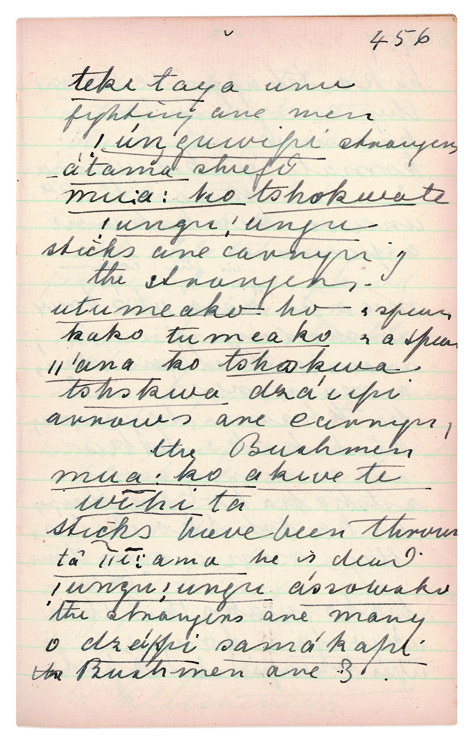 456
teke taya unu
fighting are men
!únguwipi strangers
átama shield
mua: ko tshokwa te
!ungu!ungu
sticks are carrying
the strangers.
utumeako ho = spear
kako tumeako = a spear
||ana ko tshokwa
tshokwa dzáupi
arrows are carrying
the Bushmen
mua: ko akwe te
wihi ta
sticks have been thrown
tā ama he is dead
!ungu!ungu ássowako
the strangers are many
o dzéupi samákapi
the Bushmen are 3.